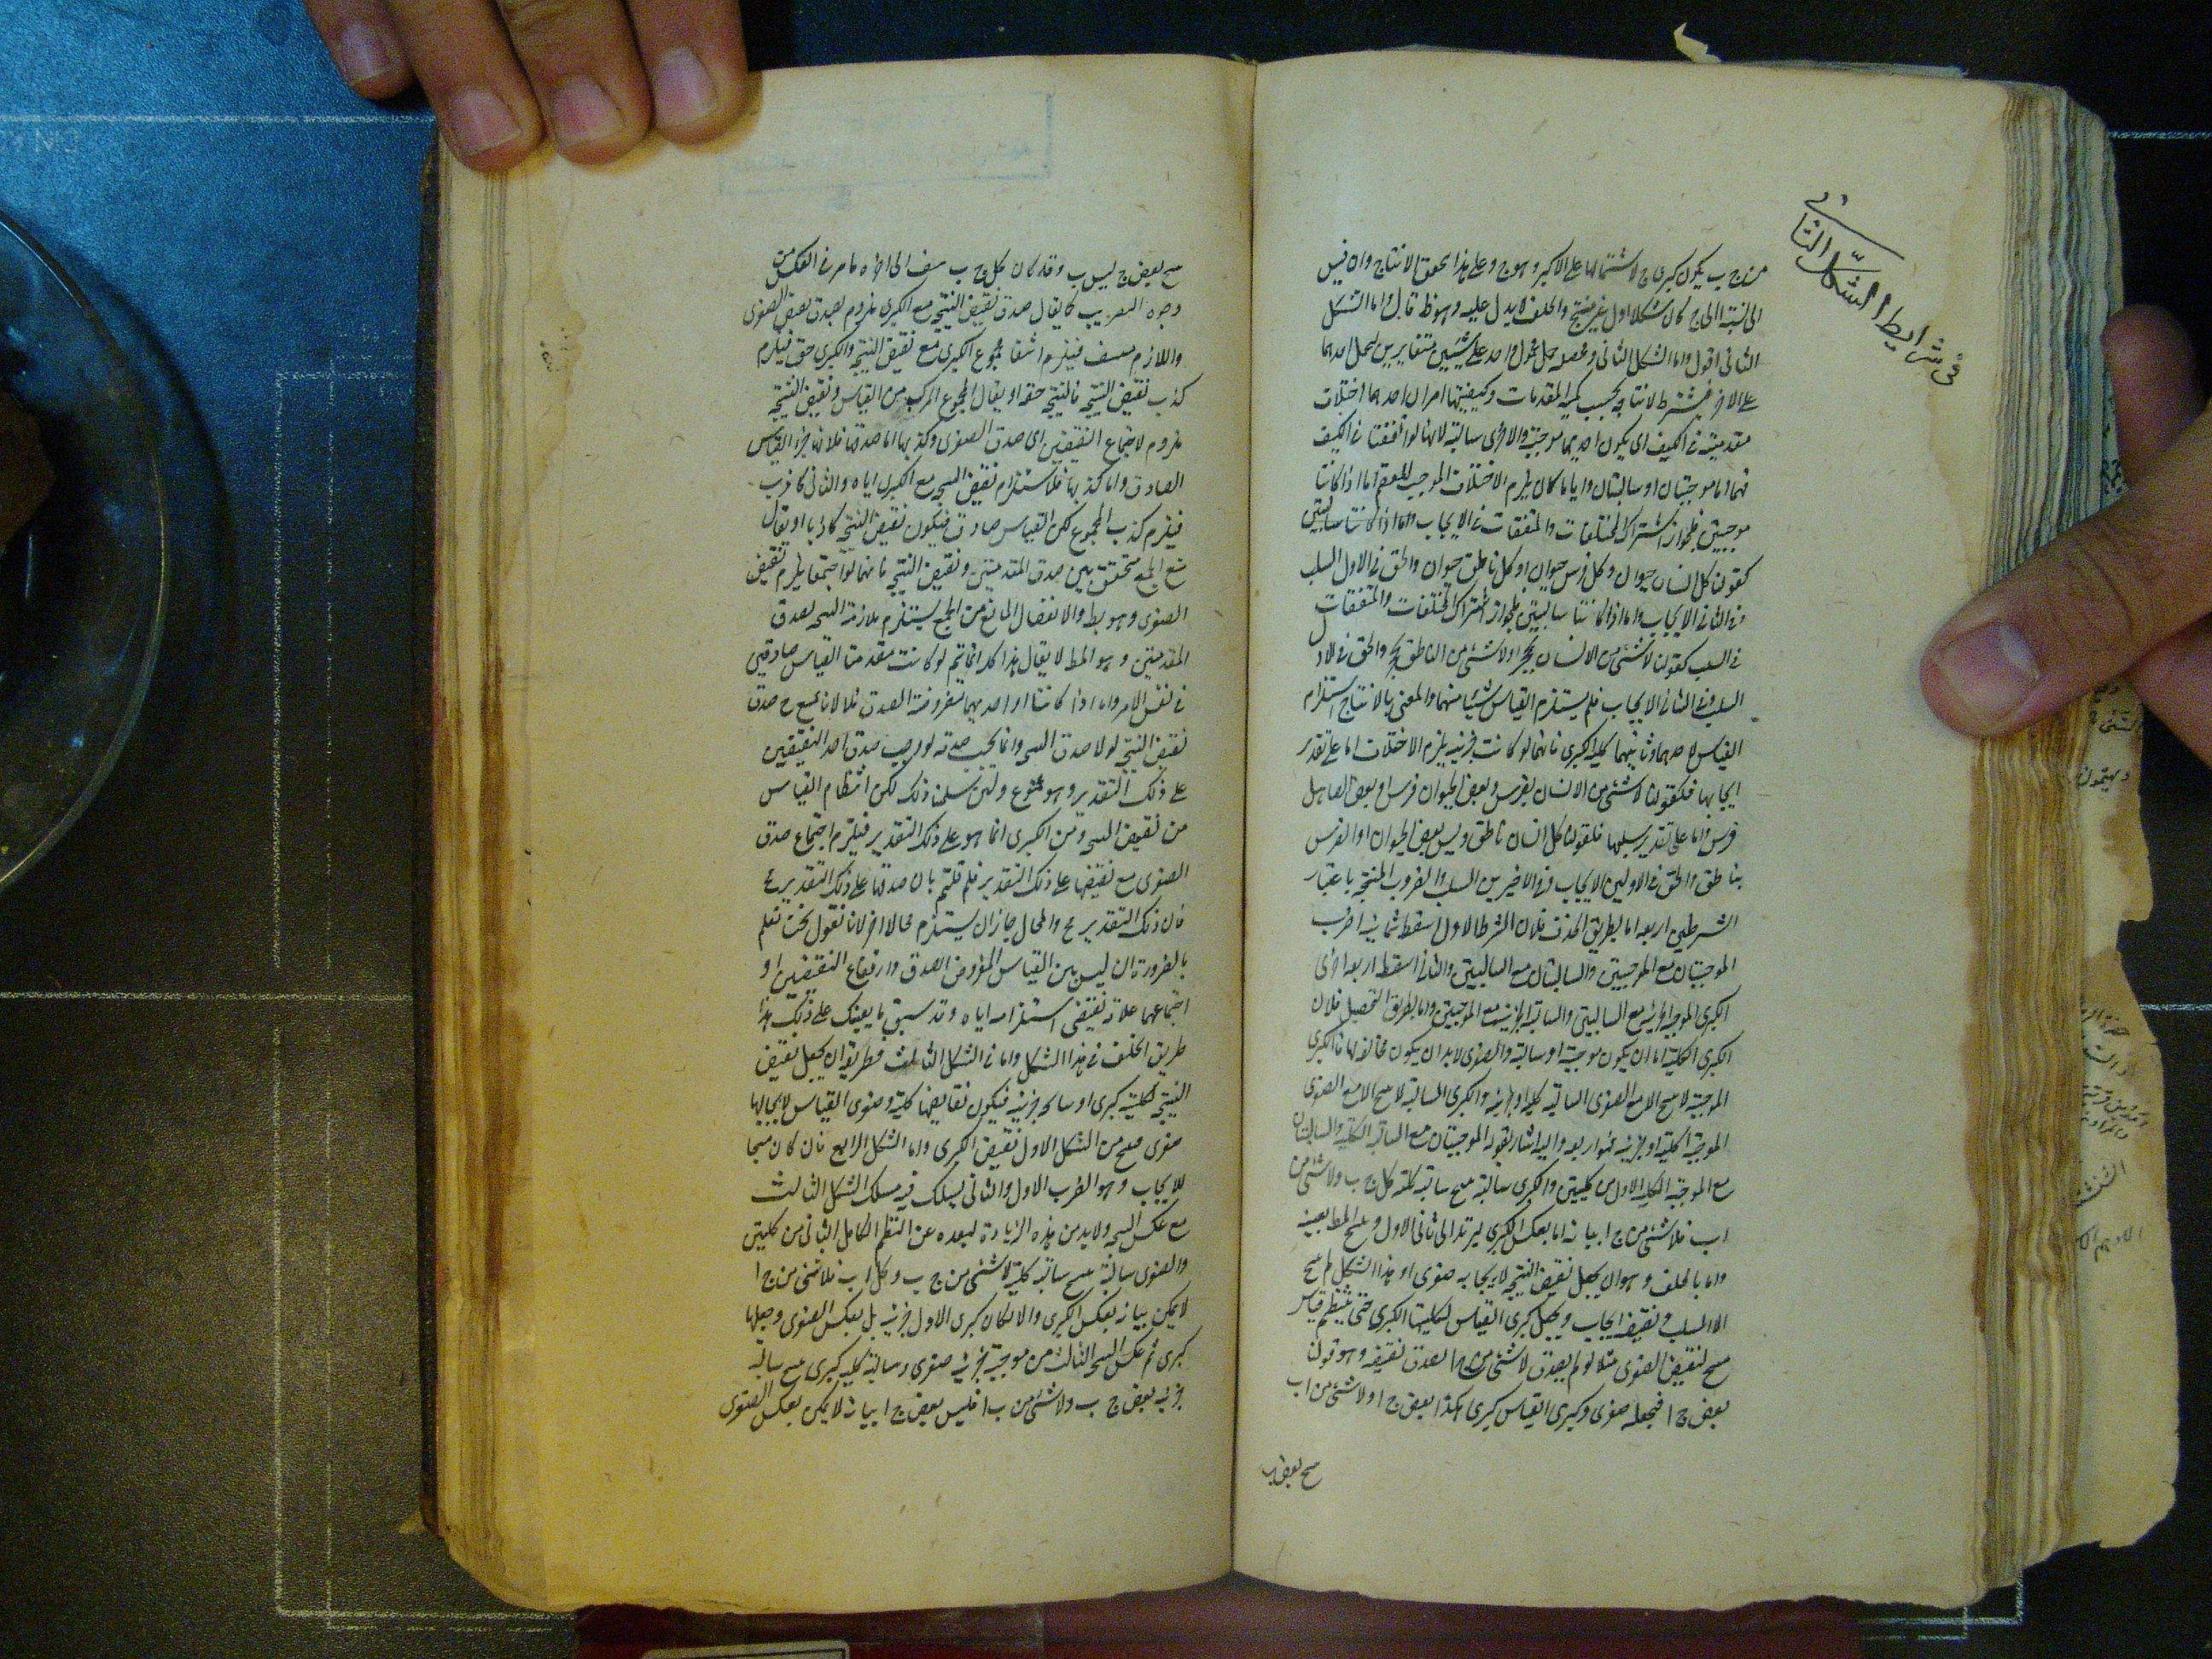 فى شرايط الشكل الثانى
من ج ب يكون كبرى ج لاشتمالها على الاكبر وهو ج وعلى هذا تحقق الانتاج وان قيس
الى النتيجة كان شكلا اول غير منتج والخلف لا يدل عليه وهو ظ قال واما الشكل
الثانى اقول واما الشكل الثانى ومحصله حمل محمول واحد على شيئين متغايرين ليحمل احدهما
على الاخر فيشترط لانتاجه بحسب كمية المقدمات وكيفيتها امران احدهما اختلاف
مقدمتيه فى الكيف اى يكون احديهما موجبة والاخرى سالبة لانهما لو اتفقتا فى الكيف
فهما اما موجبتان او سالبتان واياما كان يلزم الاختلاف الموجب للعقم اما اذا كانتا
موجبتين فلجواز اشتراك المختلفات والمتفقات فى الايجاب واما اذا كانتا سالبتين
كقولنا كل انسان حيوان وكل فرس حيوان او كل ناطق حيوان والحق فى الاول السلب
وفى الثانى الايجاب واما اذا كانتا سالبتين فلجواز اشتراك المختلفات والمتفقات
فى السلب كقولنا لا شئ من الانسان بحجر ولا شئ من الناطق بحجر والحق فى الاول
السلب وفى الثانى الايجاب فلم يستلزم القياس شيئا منهما والمعنى بالانتاج استلزام
القياس لاحدهما وثانيهما كلية الكبرى فانها لو كانت جزئية يلزم الاختلاف اما على تقدير
ايجابها فكقولنا لا شئ من الانسان بفرس وبعض الحيوان فرس او بعض الصاهل
فرس واما على تقدير سلبها فكقولنا كل انسان ناطق وليس بعض الحيوان او الفرس
بناطق والحق فى الاولين الايجاب وفى الاخيرين السلب والضروب المنتجة باعتبار
الشرطين اربعة اما بطريق الحذف فلان الشرط الاول اسقط ثمانية اضرب
الموجبتان مع الموجبتين والسالبتان مع السالبتين والثانى اسقط اربعة اخرى
الكبرى الموجبة الجزئية مع السالبتين والسالبة الجزئية مع الموجبتين واما بطريق التحصيل فلان
الكبرى الكلية اما ان يكون موجبة او سالبة والصغرى لا بد ان يكون مخالفة لها فالكبرى
الموجبة لا ينتج الا مع الصغرى السالبة كلية او جزئية والكبرى السالبة لا ينتج الا مع الصغرى
الموجبة كلية او جزئية فهو اربعة واليه اشار بقوله الموجبتان مع السالبة الكلية والسالبتان
مع الموجبة الكلية الاول من كليتين والكبرى سالبة ينتج سالبة كلية كل ج ب ولا شئ من
ا ب فلا شئ من ج ا بيانه اما بعكس الكبرى ليرتد الى ثانى الاول وينتج المط بعينه
واما بالخلف وهو ان يجعل نقيض النتيجة لايجابه صغرى اذ هذا الشكل لم ينتج
الا السلب ونقيضه ايجاب ويجعل كبرى القياس لكليتها الكبرى حتى ينتظم قياس
ينتج لنقيض الصغرى مثلا لو لم يصدق لا شئ من ج ا لصدق نقيضه وهو قولنا
بعض ج ا فنجعله صغرى وكبرى القياس كبرى هكذا بعض ج ا ولا شئ من ا ب
ينتج بعض ج ليس ب وقد كان كل ج ب هف الى اخره ما مر فى العكس من
وجوه التقريب كما يقال صدق نقيض النتيجة مع الكبرى ملزوم لصدق نقيض الصغرى
واللازم منتف فيلزم انتفاء مجموع الكبرى مع نقيض النتيجة والكبرى حق فيلزم
كذب نقيض النتيجة فالنتيجة حقة او يقال المجموع المركب من القياس ونقيض النتيجة
ملزوم لاجتماع النقيضين اى صدق الصغرى وكذبها اما صدقها فلانها جزء القياس
الصادق واما كذبها فلاستلزام نقيض النتيجة مع الكبرى اياه والثانى كاذب
فيلزم كذب المجموع لكن القياس صادق فيكون نقيض النتيجة كاذبا او يقال
منع الجمع متحقق بين صدق المقدمتين ونقيض النتيجة فانهما لو اجتمعا يلزم نقيض
الصغرى وهو بط والانفصال المانع من الجمع يستلزم ملازمة النتيجة لصدق
المقدمتين وهو المط لا يقال هذا كله انما يتم لو كانت مقدمتا القياس صادقتين
فى نفس الامر واما اذا كانتا او احديهما مفروضة الصدق فلا لانا نمنع ح صدق
نقيض النتيجة لولا صدق النتيجة وانما يجب صدقه لو وجب صدق احد النقيضين
على ذلك التقدير وهو ممنوع ولئن سلمنا ذلك لكن انتظام القياس
من نقيض النتيجة ومن الكبرى انما هو على ذلك التقدير فيلزم اجتماع صدق
الصغرى مع نقيضها على ذلك التقدير فلم قلتم بان صدقها على ذلك التقدير مح
فان ذلك التقدير مح والمحال جاز ان يستلزم محالا اخر لانا نقول نحن نعلم
بالضرورة ان ليس بين القياس المفروض الصدق وارتفاع النقيضين او
اجتماعهما علاقة تقتضى استلزامه اياه وقد سبق ما يعينك على ذلك هذا
طريق الخلف فى هذا الشكل واما فى الشكل الثالث فطريقه ان يجعل نقيض
النتيجة لكلية كبرى او سالبة جزئية فيكون نقايضها كلية وصغرى القياس لايجابها
صغرى فينتج من الشكل الاول نقيض الكبرى واما الشكل الرابع فان كان منتجا
للايجاب وهو الضرب الاول والثانى يسلك فيه مسلك الشكل الثالث
مع عكس النتيجة ولا بد من هذه الزيادة لبعده عن النظم الكامل الثانى من كليتين
والصغرى سالبة ينتج سالبة كلية لا شئ من ج ب وكل ا ب فلا شئ من ج ا
لا يمكن بيانه بعكس الكبرى والا لكان كبرى الاول جزئية بل بعكس الصغرى وجعلها
كبرى ثم عكس النتيجة الثالث من موجبة جزئية صغرى وسالبة كلية كبرى ينتج سالبة
جزئية بعض ج ب ولا شئ من ب ا فليس بعض ج ا بيانه لا يمكن بعكس الصغرى
ينتج بعض ب